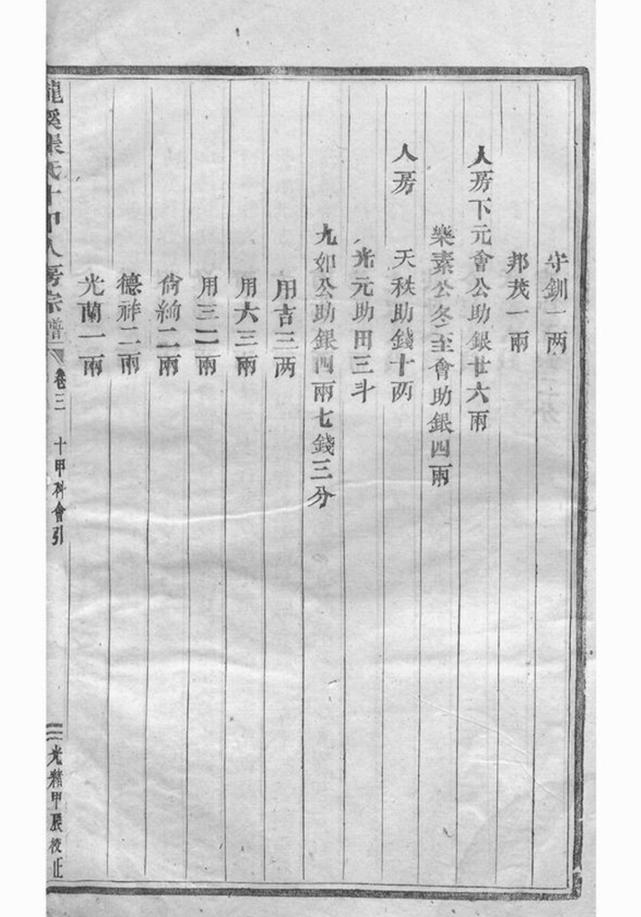 守釧一两
邦茂一兩
人房下元會公助銀廿六兩
樂素公冬至會助銀四兩
人房 天秩助錢十两
光元助田三斗
九如公助銀四兩七錢三分
用吉三两
用六三兩
用三二兩
尙絅二兩
德祚二兩
光蘭一兩
龍溪張氏十甲人房宗譜 卷三 十甲科會引
光緒甲辰校正